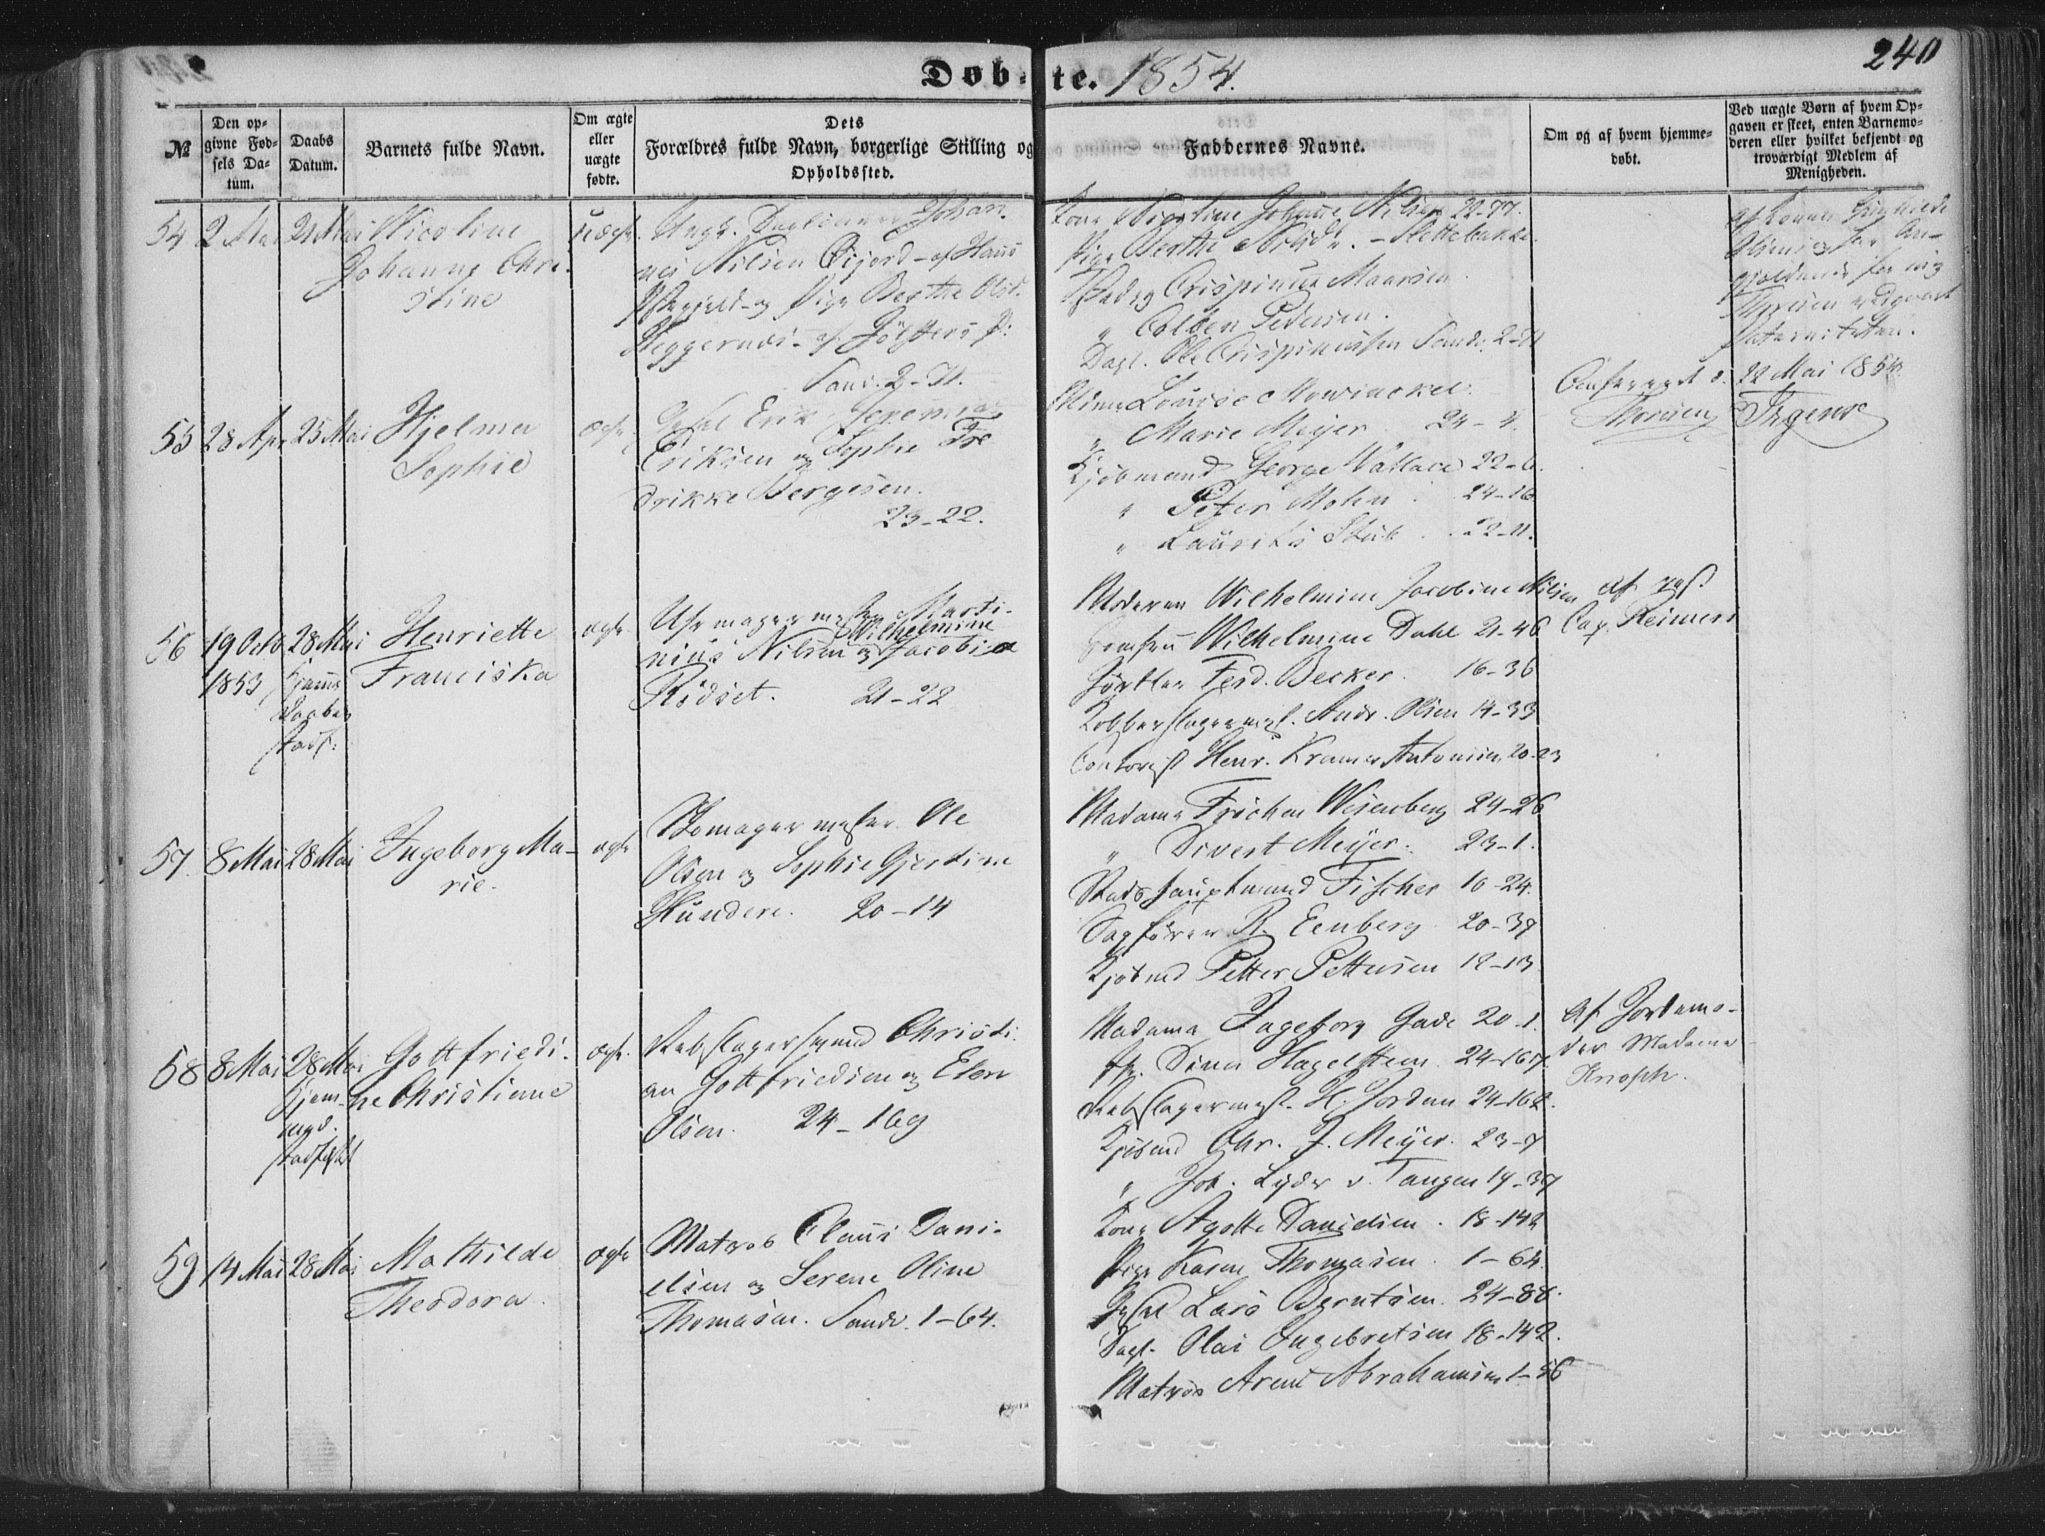 Døb-te. 1854.
240
№
Den op-
givne Fød-
sels Da-
tum.
Daabs
Datum.
Barnets fulde Navn.
Om ægte
eller
uægte
fødte.
Dets
Forældres fulde Navn, borgerlige Stilling og
Opholdssted.
Faddernes Navne.
Om og af hvem hjemme-
døbt.
Ved uægte Børn af hvem Op-
gaven er skeet, enten Barnemo-
deren eller hvilket bekjendt og
troværdigt Medlem af
Menigheden.
54 2 Mai 21 Mai Nicoline
Johanne Chri-
stine
uægte.
Ungk. Johan-
nes Nilsen Eifjord - af Haus
og Pige Berthe Olsd.
af Jölsters P:
Sandv. 2-71.
Kone Johanne Nilsen 22-77.
Pige Berthe
Crispinus Maarsen
" Colben Pedersen.
Dagl. Ole Crispinussen Sandv. 2-71
22 Mai 1854.
Thoresen
55 28 Apr 25 Mai Hjelma
Sophie
ægte
Erik Jeremias
Eriksen og Sophie Fre
drikke Bergesen.
23-22.
Louise Mowinckel.
" Marie Meyer 24-4.
Kjöbmand George Wallace 22-6.
" Peter Mohn . 24-16
" Laurits Stub . 22-11.
56 19 Octb 28 Mai Henriette
1853 Hjemme Franciska
daaben
stadf:
ægte.
Uhrmagermester Marti-
nius Nilsen og Wilhelmine Jacobine
Rödset. 21-22
Moderen Wilhelmine Jacobine Nilsen
Jomfru Wilhelmine Dahl 21-46
Förtler Ferd. Becker. 16-36
Kobberslagermest. Andr. Olsen 14-33
Contorist Henr. Kramer Antonisen 20-23
af
Cap. Reimers
57. 8 Mai 28 Mai Ingeborg Ma-
rie.
ægte
Skomagermester Ole
Olsen og Sophie Gjertine
Hundere. 20-14
Madame Frichen Wesenberg 24-26
" Divert Meyer. 23-1.
Stadshauptmand Fischer 10-24.
Sagförer R. Eenberg 20-37
Kjöbmd Petter Pettersen 12-13
58 8 Mai 28 Mai Gottfriedi-
ne Christiane
Hjem-
med.
stadfæstet
ægte.
Rebslagersvend Christi-
an Gottfriedsen og Elen
Olsen. 24-169
Madame Ingeborg Gade 20-1.
Fr. Dina Hagelsteen 24-167.
Rebslagermest. H. Jordan 24-162.
Kjöbmd Chr. J. Meyer. 23-7
" Joh. Lyder v. Tangen 19-37
af Jordemo-
der Madame
Knoph.
59 14 Mai 28 Mai Mathilde
Theodora
ægte
Matros Claus Dani-
elsen og Serene Oline
Thomasen. Sandv. 1-64.
Kone Agotte Danielsen . 18-142
Pige Karen Thomasen. 1-64.
Lars Berntsen. 24-88.
Dagl. Olai Engebretsen 18-142.
Matros Arent Abrahamsen 1-56